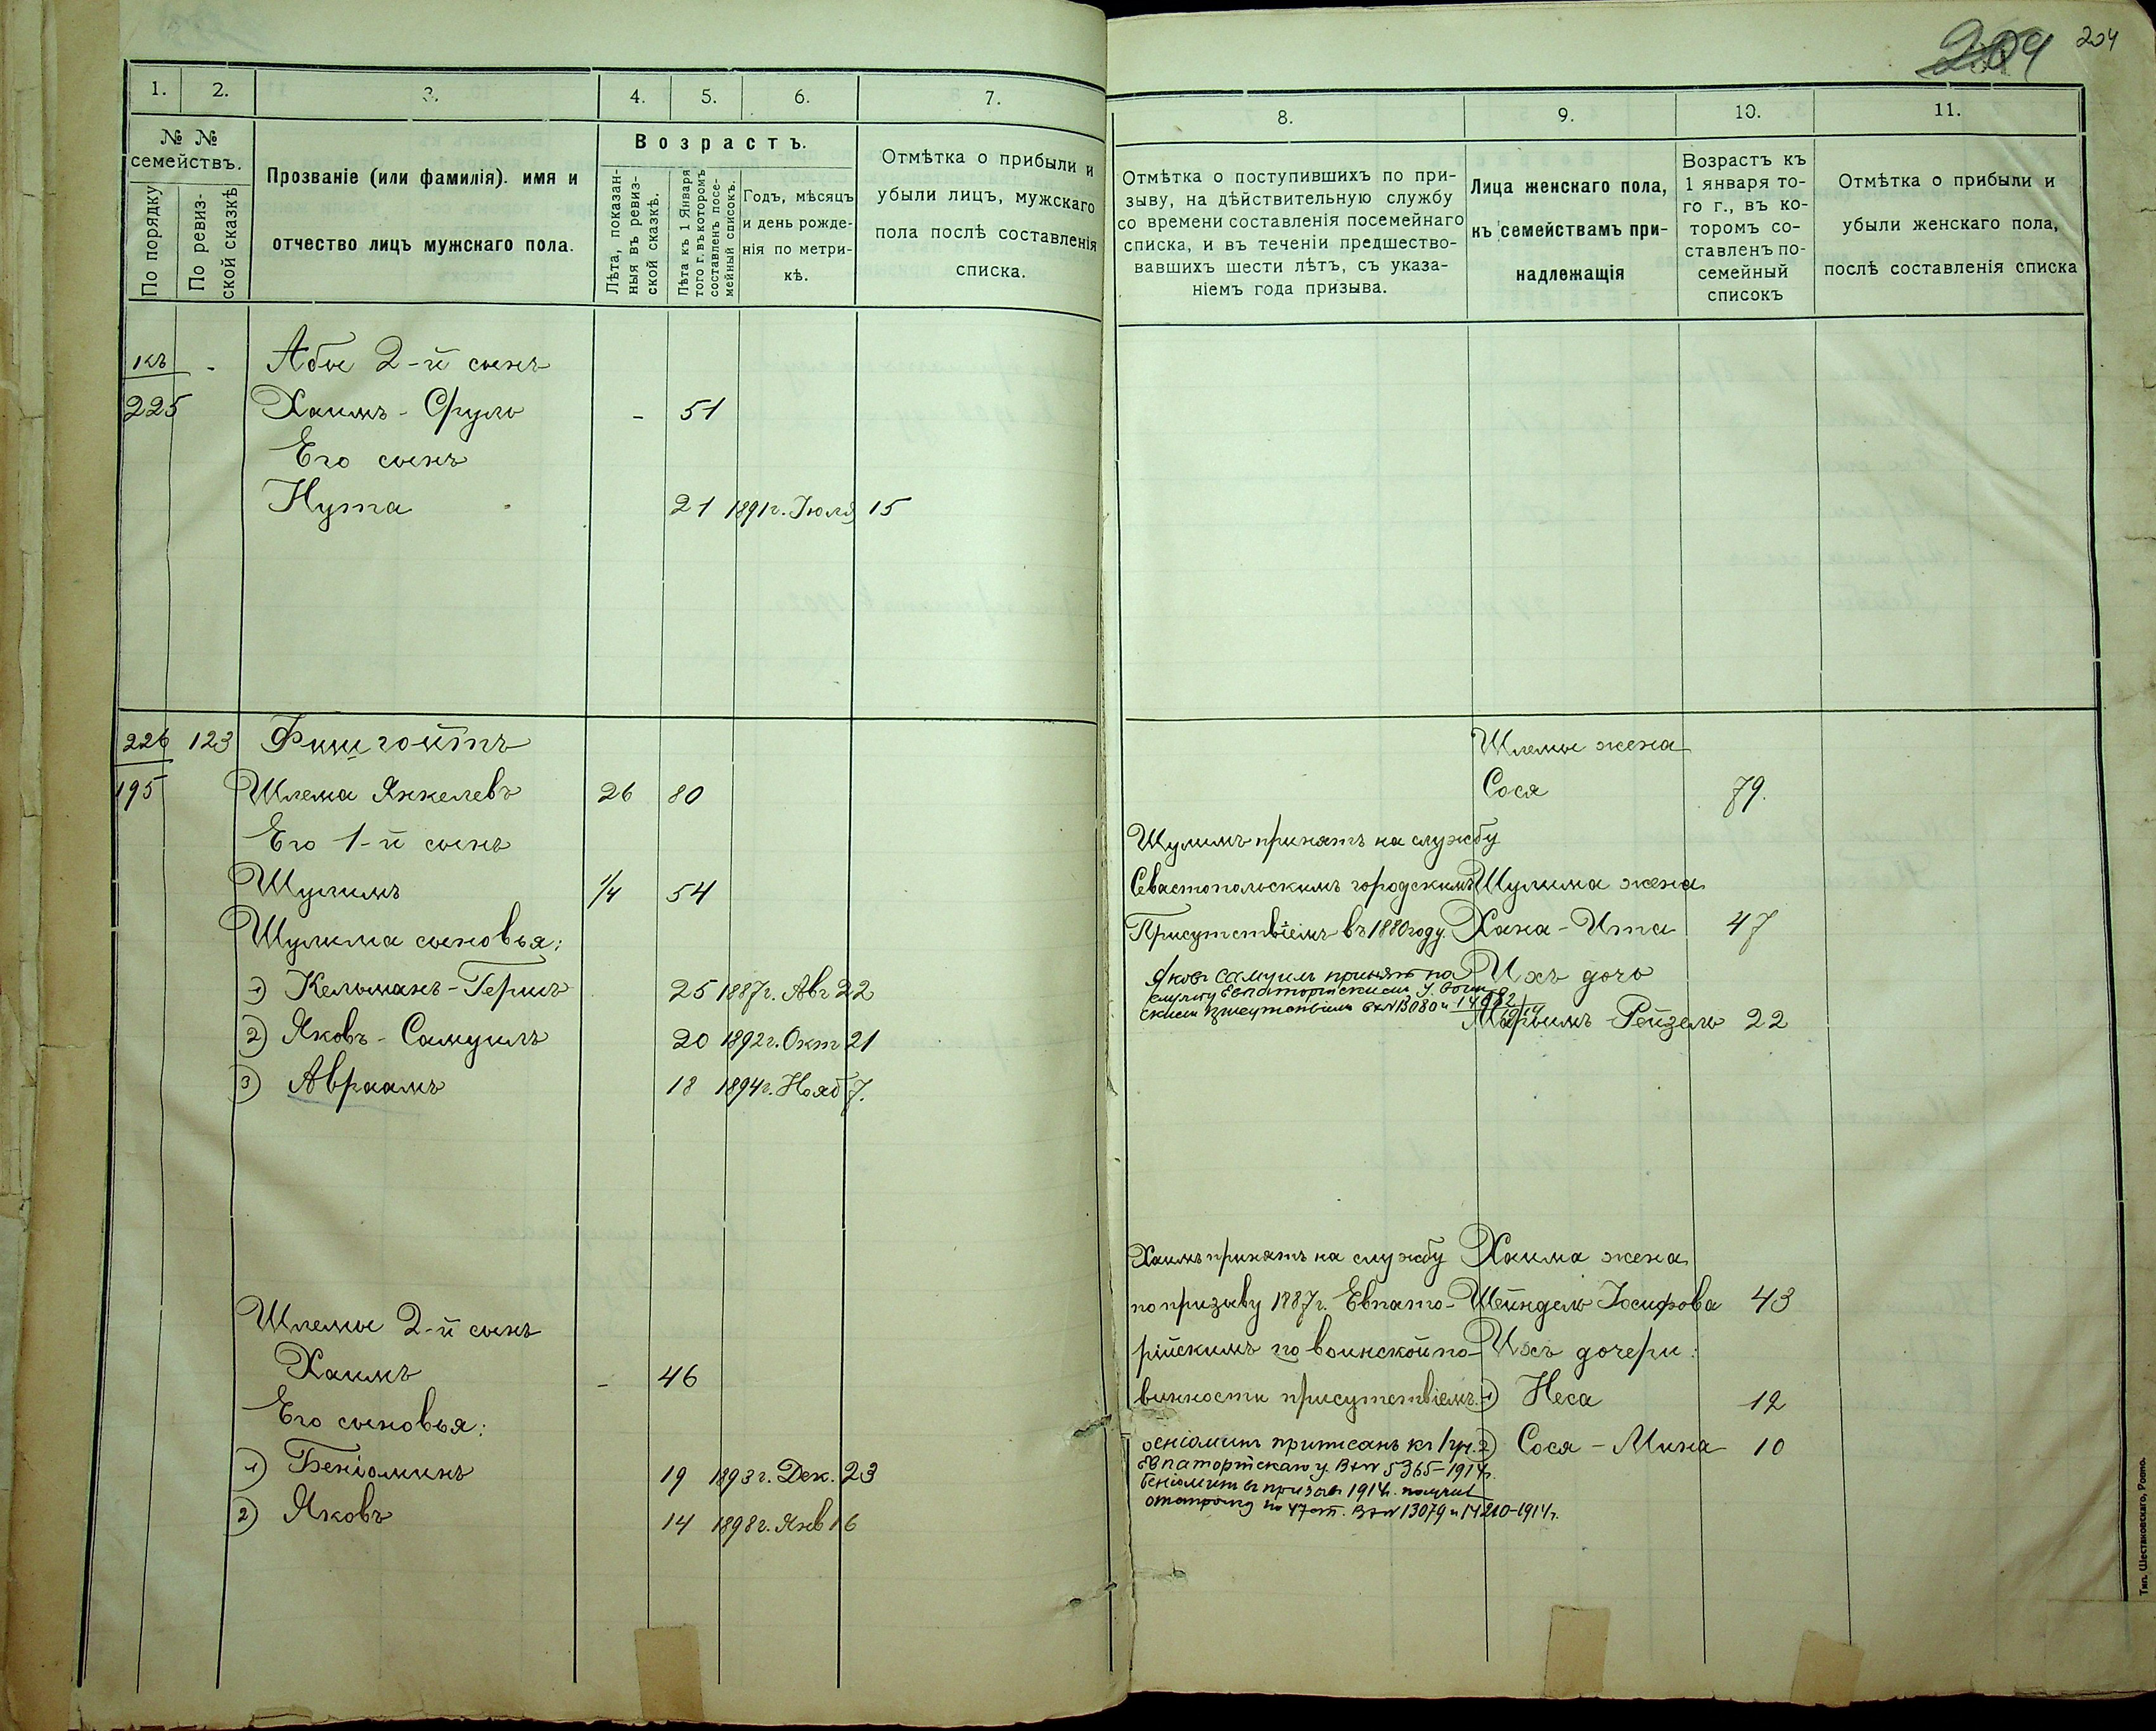 204 204
1. 2. 3. 4. 5. 6. 7.
№ № семействъ.
По порядку
По ревиз-
ской сказкѣ
Прозваніе (или фамилія). имя и
отчество лицъ мужскаго пола.
Возрастъ.
Лѣта, показан-
ныя въ ревиз-
ской сказкѣ.
Лѣта къ 1 Января
того г. въ которомъ
составленъ посе-
мейный списокъ.
Годъ, мѣсяцъ
и день рожде-
нія по метри-
кѣ.
Отмѣтка о прибыли и
убыли лицъ, мужскаго
пола послѣ составленія
списка.
къ - Абы 2-й сынъ
225 Хаимъ-Сруль - 51
Его сынъ
Нута 21 1891г. Іюля 15
226 123 Фишгойтъ
195 Шлема Янкелевъ 26 80
Его 1-й сынъ
Шулимъ 1/4 54
Шулима сыновья:
1) Кельманъ-Гершъ 25 1887г. Авг 22
2) Яковъ-Самуилъ 20 1892г. Окт 21
3) Авраамъ 18 1894г. Нояб 7.
Шлемы 2-й сынъ
Хаимъ - 46
Его сыновья:
1) Беніоминъ 19 1893г. Дек. 23
2) Яковъ 14 1898г. Янв 16
8. 9. 10. 11.
Отмѣтка о поступившихъ по при-
зыву, на дѣйствительную службу
со времени составленія посемейнаго
списка, и въ теченіи предшество-
вавшихъ шести лѣтъ, съ указа-
ніемъ года призыва.
Лица женскаго пола,
къ семействамъ при-
надлежащія
Возрастъ къ
1 января то-
го г., въ ко-
торомъ со-
ставленъ по-
семейный
списокъ
Отмѣтка о прибыли и
убыли женскаго пола,
послѣ составленія списка
Шлемы жена
Сося 79.
Шулимъ принятъ на службу
Севастопольскимъ городскимъ Шулима жена
Присутствіемъ въ 1880 году. Хана-Ита 47
Яковъ Самуилъ принятъ на Ихъ дочь
службу Евпаторійскимъ У. Воин
скимъ присутствіемъ вх№13080 и
Марьимъ-Рейзель 22
Хаимъ принятъ на службу Хаима жена
по призыву 1887г. Евпато- Шейндель Іосифова 43
рійскимъ по воинской по- Ихъ дочери:
винности присутствіемъ. 1) Неса 12
Беніоминъ приписанъ къ 1 уч. 2) Сося-Мина 10
Евпаторійскаго у. Вх№ 5365-1914г.
Беніоминъ въ призывъ 1914г. получилъ
отсрочку по 47 ст. Вх№ 13079 и 14210-1914г.
Тип. Шестаковскаго, Ровно.